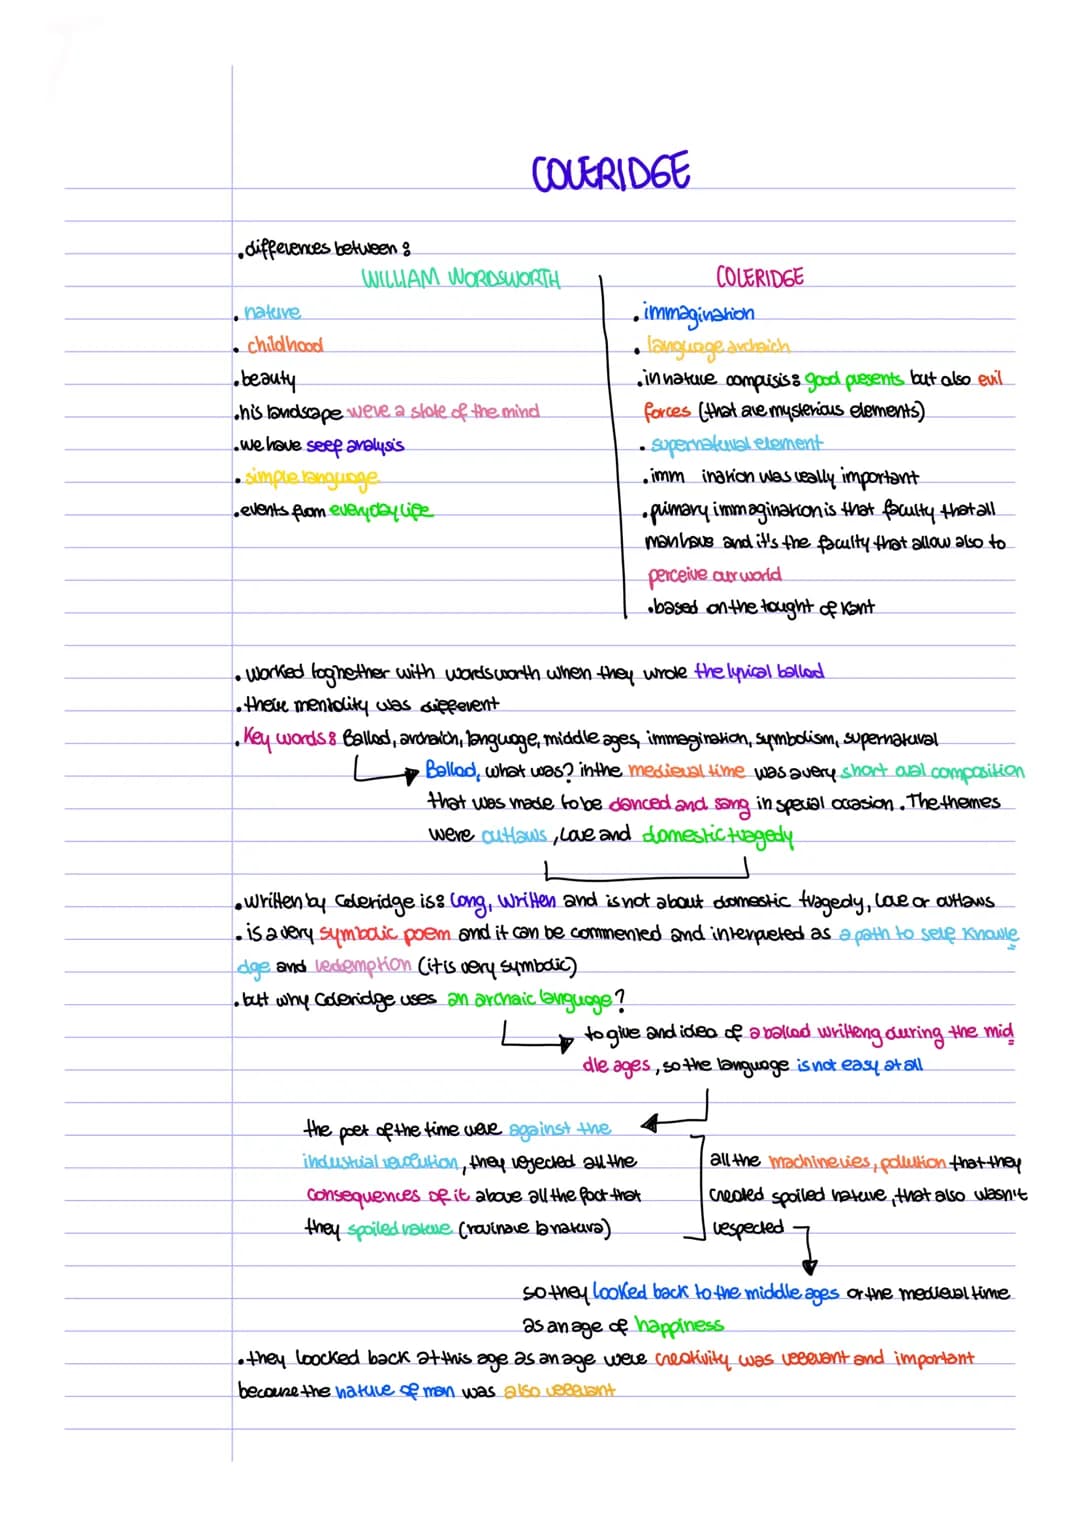 COLERIDGE
. differences between :
WILLIAM WORDSWORTH
. nature
. childhood
. beauty
. his landscape were a state of the mind
. we have self analysis
. simple language
. events from everyday life
COLERIDGE
. immagination
. language archaich
. in nature comprisis: good presents but also evil
forces (that are mysterious elements)
. supernatural element
. imm ination was really important
. primary immagination is that faculty that all
man have and it's the faculty that allow also to
perceive our world
. based on the tought of Kant
. worked toghether with wordsworth when they wrote the lyrical ballad
. their mentality was different
. Key words: Ballad, archaich, language, middle ages, immagination, symbolism, supernatural
Ballad, what was? in the medieval time was a very short oral composition
that was made to be danced and sang in special occasion. The themes
were outlaws, love and domestic tragedy
. written by Coleridge is: long, written and is not about domestic tragedy, love or outlaws
. is a very symbolic poem and it can be commented and interpreted as a path to self knowle
dge and redemption (it is very symbolic)
. but why Coleridge uses an archaic language?
to give and idea of a ballad writteng during the mid
dle ages, so the language is not easy at all
the poet of the time were against the
industrial revolution, they rejected all the
consequences of it above all the fact that
they spoiled nature (rovinare la natura)
all the machineries, pollution that they
created spoiled nature, that also wasn't
respected
so they looked back to the middle ages or the medieval time
as an age of happiness
. they loocked back at this age as an age were creativity was relevant and important
because the nature of man was also relevant